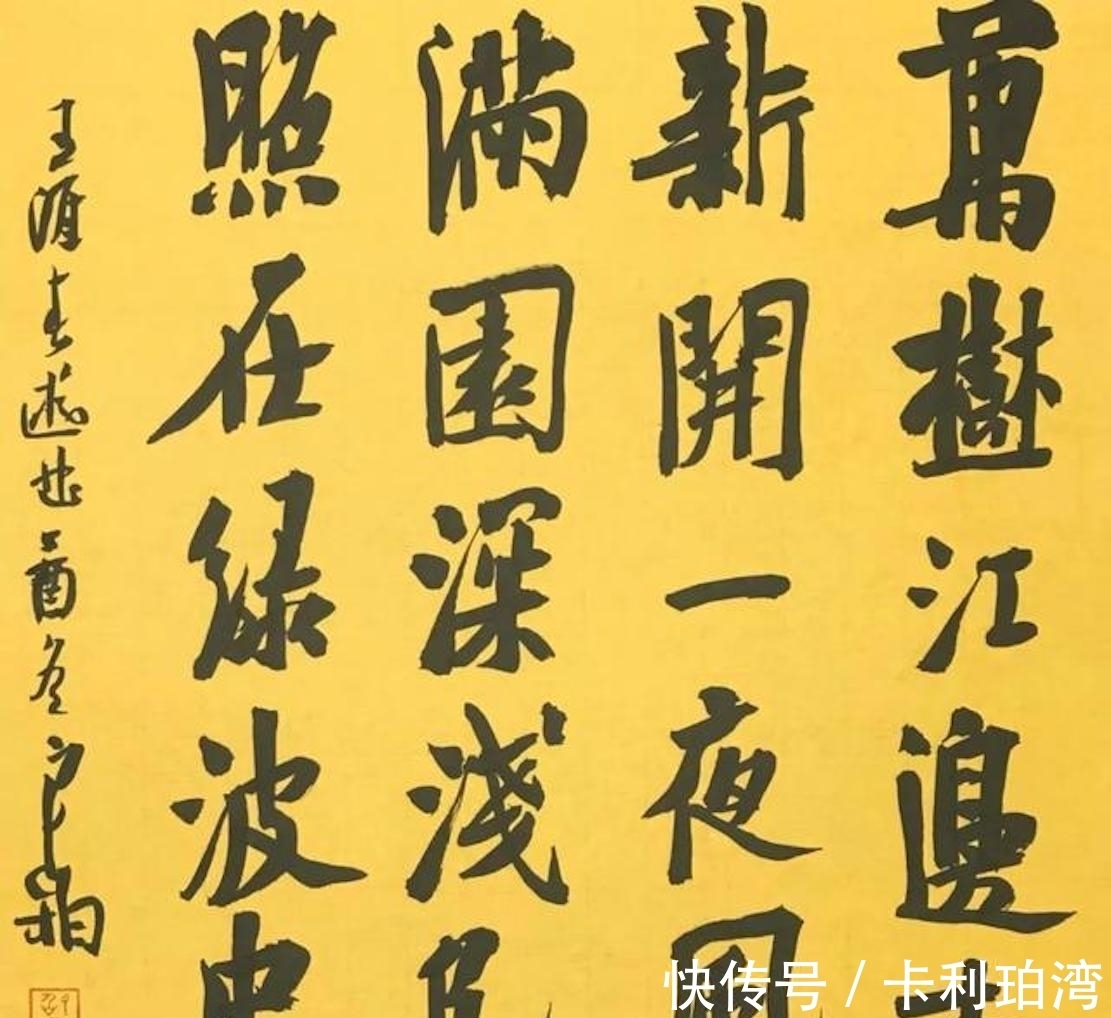 萬樹江邊
新開一夜風
滿園深淺色
照在綠波中
王涯春遊曲酉冬
快传号 / 卡利珀湾